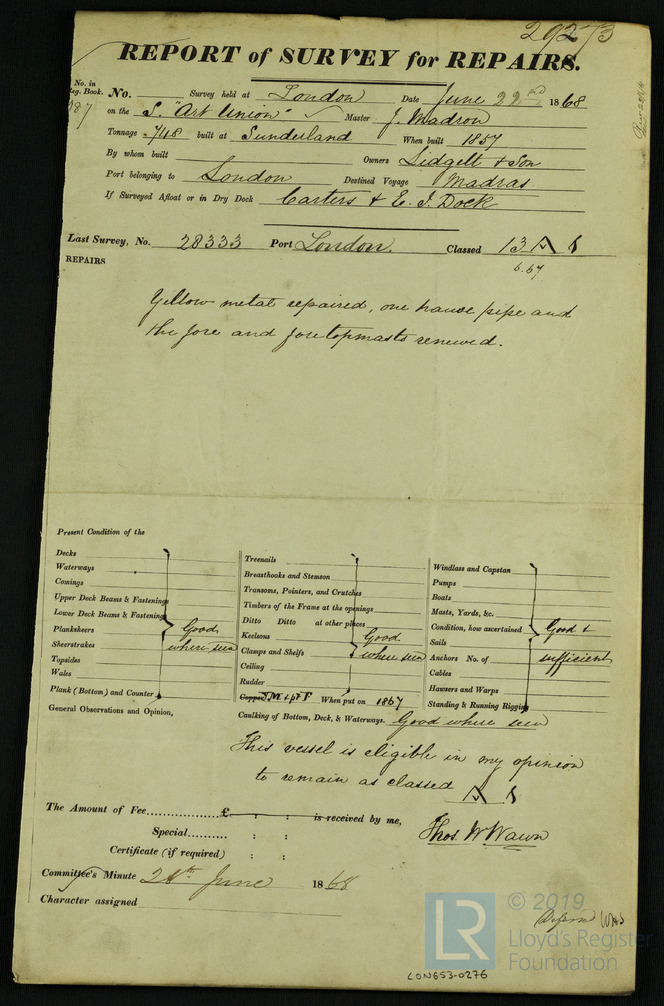 29273
REPORT of SURVEY for REPAIRS.
No. in Reg. Book.
187
No. Survey held at London Date June 22nd 1868
on the S. "Art Union" Master J. Madron
Tonnage 748 built at Sunderland When built 1857
By whom built Owners Lidgett & Son
Port belonging to London Destined Voyage Madras
If Surveyed Afloat or in Dry Dock Carters & E. I. Dock
Last Survey, No. 28333 Port London. Classed 13 A 1
6.67
REPAIRS
Yellow metal repaired, one hause pipe and
the fore and foretopmasts renewed.
Present Condition of the
Decks
Waterways
Comings
Upper Deck Beams & Fastenings
Lower Deck Beams & Fastenings
Planksheers
Sheerstrakes
Topsides
Wales
Plank (Bottom) and Counter
Good
where seen
General Observations and Opinion,
Treenails
Breasthooks and Stemson
Transoms, Pointers, and Crutches
Timbers of the Frame at the openings
Ditto Ditto at other places
Keelsons
Clamps and Shelfs
Ceiling
Rudder
Good
where seen
Copper Y.M. & pt F When put on 1867
Caulking of Bottom, Deck, & Waterways. Good where seen
Windlass and Capstan
Pumps
Boats
Masts, Yards, &c.
Condition, how ascertained
Sails
Anchors No. of
Cables
Hawsers and Warps
Standing & Running Rigging
Good &
sufficient
This vessel is eligible in my opinion
to remain as classed A 1
The Amount of Fee £ : : is received by me,
Special : :
Certificate (if required) : :
Thos. W Wawn
Committee's Minute 26th June 1868
Character assigned
© 2019
LR
Lloyd's Register
Foundation
LON653-0276